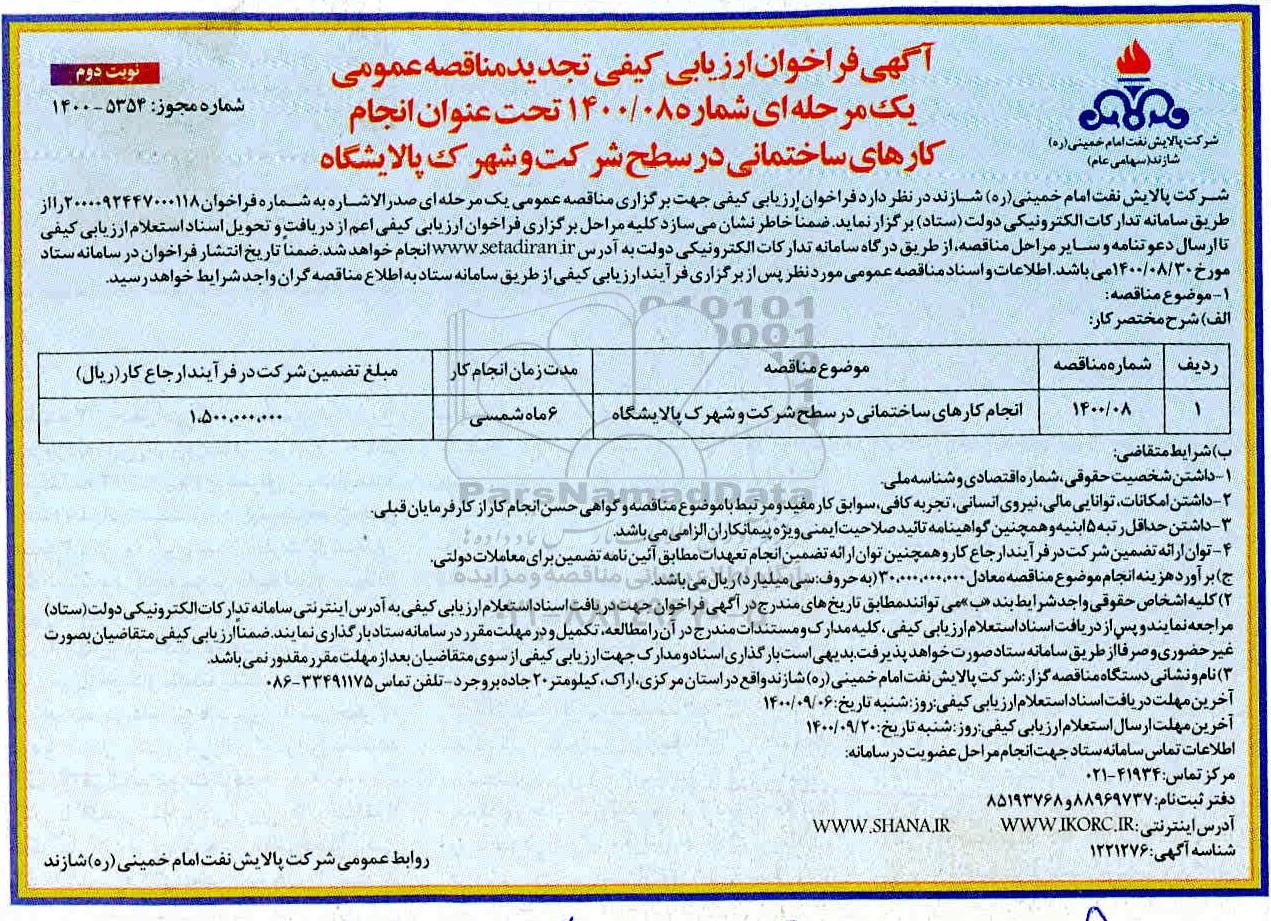 نوبت دوم
شماره مجوز: ۵۳۵۴ - ۱۴۰۰
آگهی فراخوان ارزیابی کیفی تجدید مناقصه عمومی
یک مرحله ای شماره ۱۴۰۰/۰۸ تحت عنوان انجام
کارهای ساختمانی در سطح شرکت و شهرک پالایشگاه
شرکت پالایش نفت امام خمینی (ره)
شازند (سهامی عام)
شرکت پالایش نفت امام خمینی (ره) شازند در نظر دارد فراخوان ارزیابی کیفی جهت برگزاری مناقصه عمومی یک مرحله ای صدرالاشاره به شماره فراخوان ۲۰۰۰۰۹۲۴۴۷۰۰۰۱۱۸ را از
طریق سامانه تدارکات الکترونیکی دولت (ستاد) برگزار نماید. ضمنا خاطر نشان می سازد کلیه مراحل برگزاری فراخوان ارزیابی کیفی اعم از دریافت و تحویل اسناد استعلام ارزیابی کیفی
تا ارسال دعوتنامه و سایر مراحل مناقصه، از طریق درگاه سامانه تدارکات الکترونیکی دولت به آدرس www.setadiran.ir انجام خواهد شد. ضمنا تاریخ انتشار فراخوان در سامانه ستاد
مورخ ۱۴۰۰/۰۸/۳۰ می باشد. اطلاعات و اسناد مناقصه عمومی مورد نظر پس از برگزاری فرآیند ارزیابی کیفی از طریق سامانه ستاد به اطلاع مناقصه گران واجد شرایط خواهد رسید.
۱- موضوع مناقصه:
الف) شرح مختصر کار:
ردیف شماره مناقصه موضوع مناقصه مدت زمان انجام کار مبلغ تضمین شرکت در فرآیند ارجاع کار (ریال)
۱ ۱۴۰۰/۰۸ انجام کارهای ساختمانی در سطح شرکت و شهرک پالایشگاه ۶ ماه شمسی ۱،۵۰۰،۰۰۰،۰۰۰
ب) شرایط متقاضی:
۱- داشتن شخصیت حقوقی، شماره اقتصادی و شناسه ملی.
۲- داشتن امکانات، توانایی مالی، نیروی انسانی، تجربه کافی، سوابق کار مفید و مرتبط با موضوع مناقصه و گواهی حسن انجام کار از کارفرمایان قبلی.
۳- داشتن حداقل رتبه ۵ ابنیه و همچنین گواهینامه تائید صلاحیت ایمنی ویژه پیمانکاران الزامی می باشد.
۴- توان ارائه تضمین شرکت در فرآیند ارجاع کار و همچنین توان ارائه تضمین انجام تعهدات مطابق آئین نامه تضمین برای معاملات دولتی.
ج) برآورد هزینه انجام موضوع مناقصه معادل ۳۰،۰۰۰،۰۰۰،۰۰۰ (به حروف: سی میلیارد) ریال می باشد.
۲) کلیه اشخاص حقوقی واجد شرایط بند «ب» می توانند مطابق تاریخ های مندرج در آگهی فراخوان جهت دریافت اسناد استعلام ارزیابی کیفی به آدرس اینترنتی سامانه تدارکات الکترونیکی دولت (ستاد)
مراجعه نمایند و پس از دریافت اسناد استعلام ارزیابی کیفی، کلیه مدارک و مستندات مندرج در آن را مطالعه، تکمیل و در مهلت مقرر در سامانه ستاد بارگذاری نمایند. ضمناً ارزیابی کیفی متقاضیان بصورت
غیر حضوری و صرفا از طریق سامانه ستاد صورت خواهد پذیرفت. بدیهی است بارگذاری اسناد و مدارک جهت ارزیابی کیفی از سوی متقاضیان بعد از مهلت مقرر مقدور نمی باشد.
۳) نام و نشانی دستگاه مناقصه گزار: شرکت پالایش نفت امام خمینی (ره) شازند واقع در استان مرکزی، اراک، کیلومتر ۲۰ جاده بروجرد - تلفن تماس ۳۳۴۹۱۱۷۵-۰۸۶
آخرین مهلت دریافت اسناد استعلام ارزیابی کیفی: روز: شنبه تاریخ: ۱۴۰۰/۰۹/۰۶
آخرین مهلت ارسال استعلام ارزیابی کیفی: روز: شنبه تاریخ: ۱۴۰۰/۰۹/۲۰
اطلاعات تماس سامانه ستاد جهت انجام مراحل عضویت در سامانه:
مرکز تماس: ۴۱۹۳۴-۰۲۱
دفتر ثبت نام: ۸۸۹۶۹۷۳۷ و ۸۵۱۹۳۷۶۸
آدرس اینترنتی: WWW.IKORC.IR WWW.SHANA.IR
شناسه آگهی: ۱۲۲۱۲۷۶
روابط عمومی شرکت پالایش نفت امام خمینی (ره) شازند
ParsNamadData